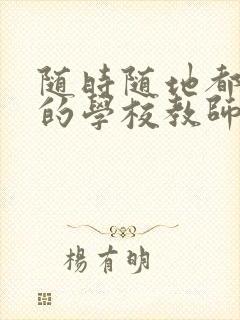 随時随地都
的學校教師
楊有明